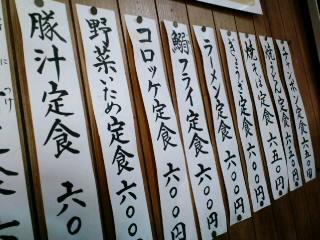 チャンポン定食 六五〇円
焼うどん定食 六五〇円
焼そば定食 六〇〇円
ぎょうざ定食 六〇〇円
ラーメン定食 六〇〇円
鰯フライ定食 六〇〇円
コロッケ定食 六〇〇
野菜いため定食 六〇〇
豚汁定食 六〇
定食